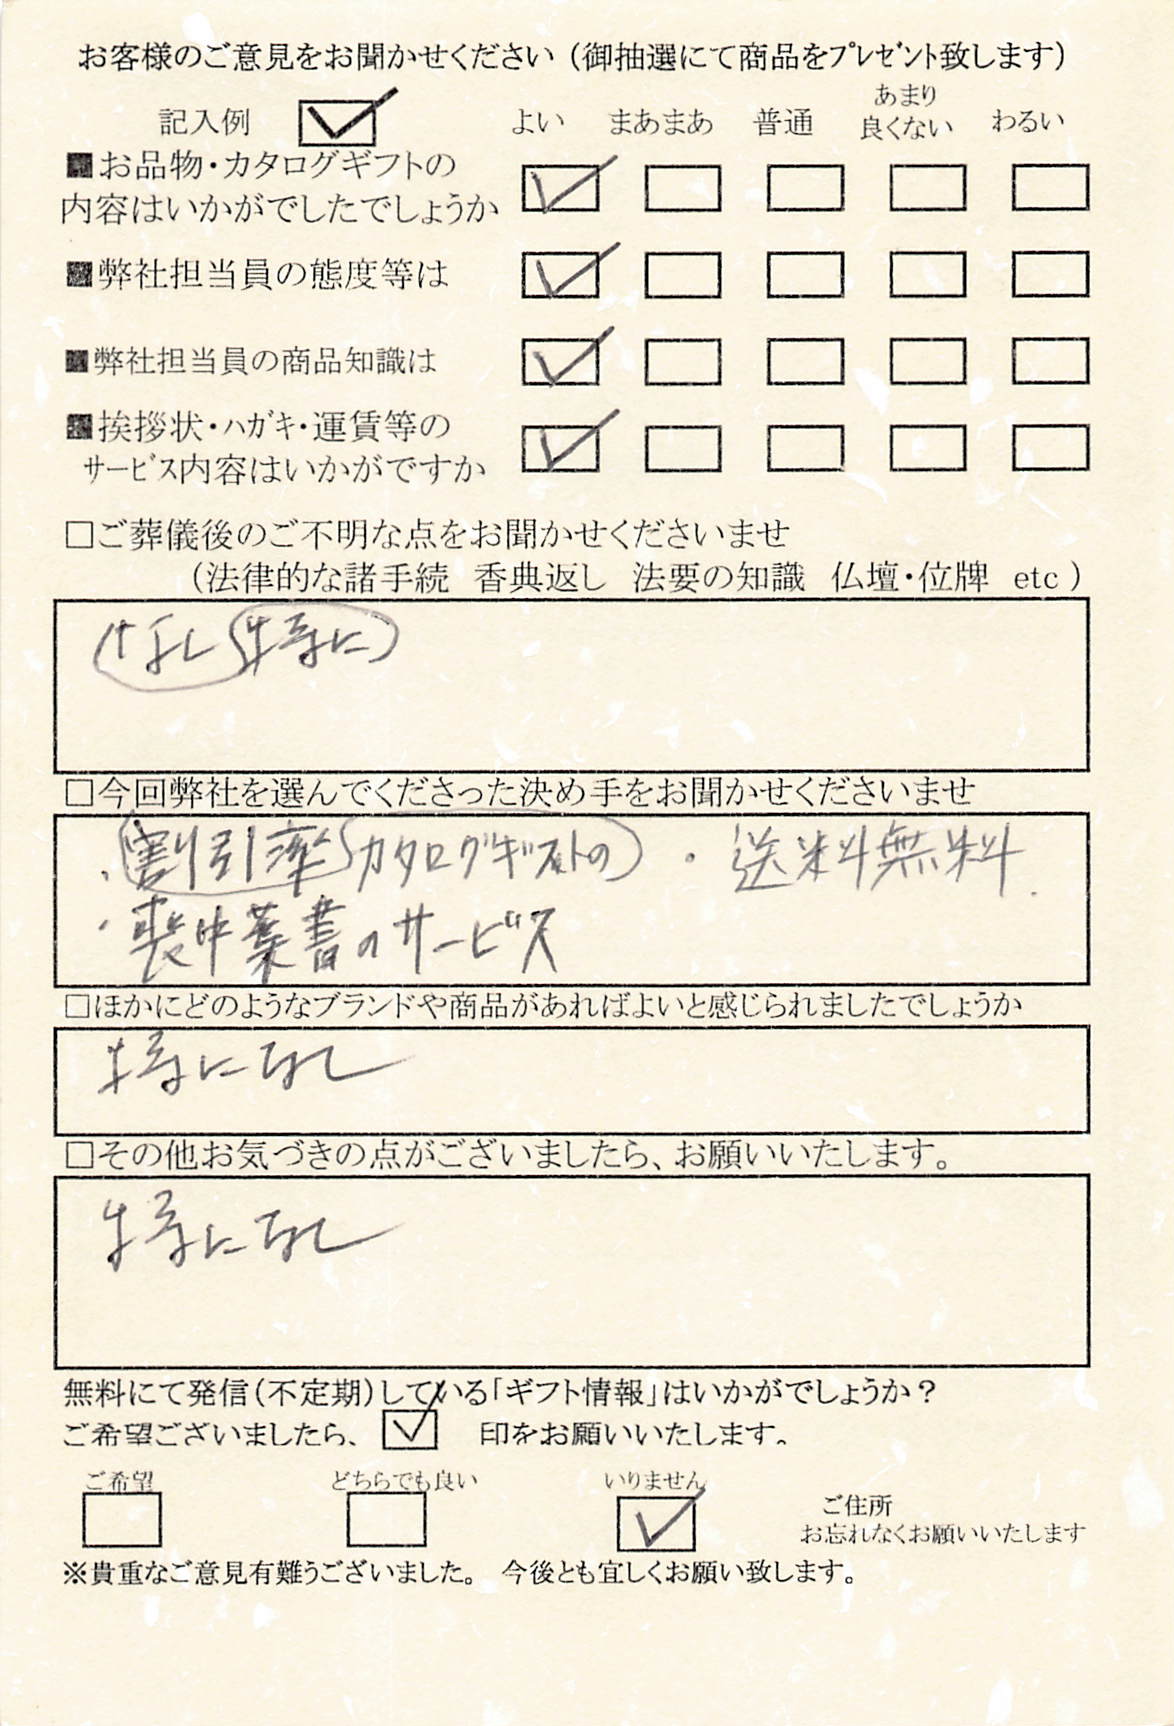 お客様のご意見をお聞かせください（御抽選にて商品をプレゼント致します）
記入例 ☑ よい まあまあ 普通 あまり良くない わるい
■お品物・カタログギフトの
内容はいかがでしたでしょうか ☑ □ □ □ □
■弊社担当員の態度等は ☑ □ □ □ □
■弊社担当員の商品知識は ☑ □ □ □ □
■挨拶状・ハガキ・運賃等の
サービス内容はいかがですか ☑ □ □ □ □
□ご葬儀後のご不明な点をお聞かせくださいませ
（法律的な諸手続 香典返し 法要の知識 仏壇・位牌 etc）
なし 特に
□今回弊社を選んでくださった決め手をお聞かせくださいませ
・割引率 カタログギフトの ・送料無料
・喪中葉書のサービス
□ほかにどのようなブランドや商品があればよいと感じられましたでしょうか
特になし
□その他お気づきの点がございましたら、お願いいたします。
特になし
無料にて発信（不定期）している「ギフト情報」はいかがでしょうか？
ご希望ございましたら、☑ 印をお願いいたします。
ご希望 どちらでも良い いりません
□ □ ☑ ご住所
お忘れなくお願いいたします
※貴重なご意見有難うございました。 今後とも宜しくお願い致します。